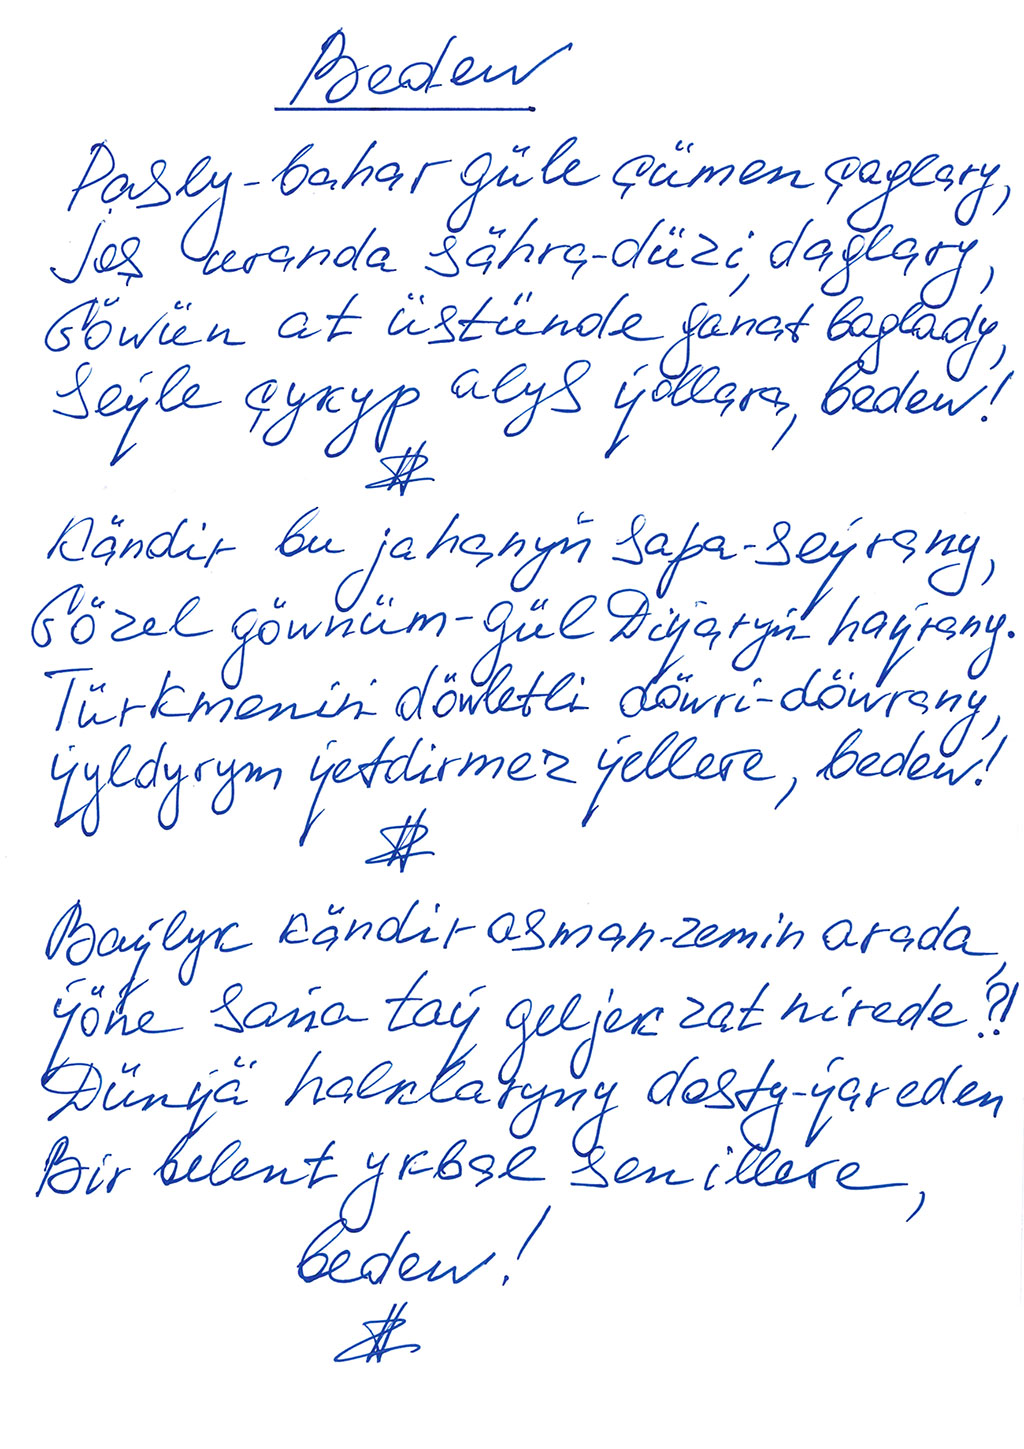 Bedew
Pasly-bahar güle çümen çaglary,
Joş uranda sähra-düzi, daglary,
Göwün at üstünde ganat baglady,
Seýle çykyp alys ýollara, bedew!
Kändir bu jahanyň sapa-seýrany,
Gözel göwnüm-gül Diýaryň haýrany.
Türkmeniň döwletli döwri-döwrany,
Ýyldyrym ýetdirmez ýellere, bedew!
Baýlyk kändir asman-zemin arada,
Ýöne saňa taý geljek zat nirede?!
Dünýä halklaryny dosty-ýar eden
Bir belent ykbal sen illere,
bedew!